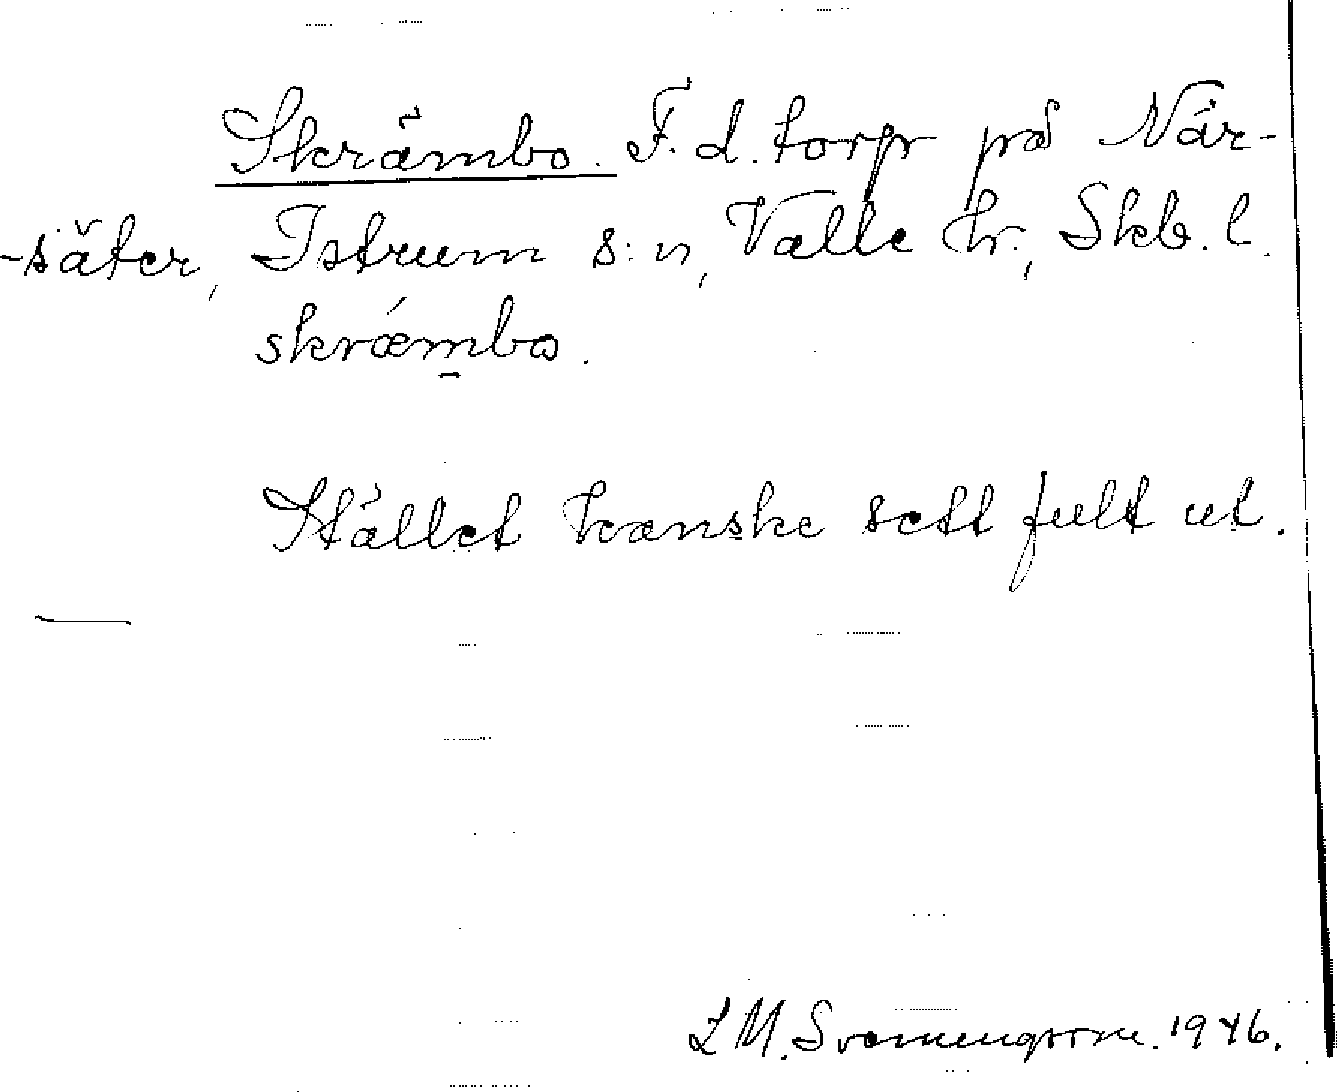 Skrämbo. F. d. torp på När-
-säter, Istrum s:n, Valle hr., Skb. l.
skræ´mbo.
Stället kanske sett fult ut.
L M. Svanungsson. 1946.